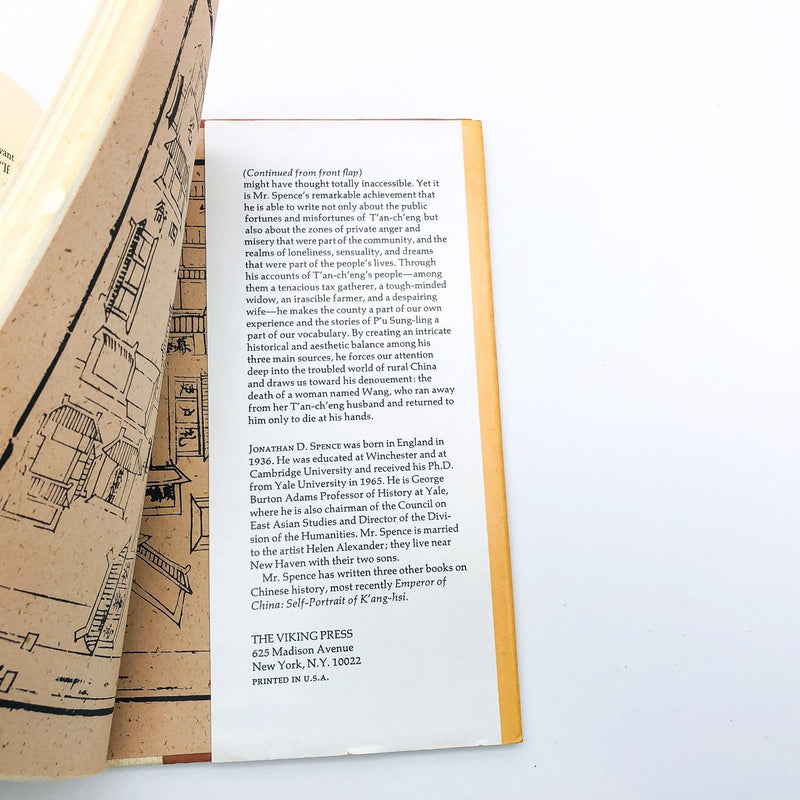 vant
"If
(Continued from front flap)
might have thought totally inaccessible. Yet it
is Mr. Spence's remarkable achievement that
he is able to write not only about the public
fortunes and misfortunes of T'an-ch'eng but
also about the zones of private anger and
misery that were part of the community, and the
realms of loneliness, sensuality, and dreams
that were part of the people's lives. Through
his accounts of T'an-ch'eng's people—among
them a tenacious tax gatherer, a tough-minded
widow, an irascible farmer, and a despairing
wife—he makes the county a part of our own
experience and the stories of P'u Sung-ling a
part of our vocabulary. By creating an intricate
historical and aesthetic balance among his
three main sources, he forces our attention
deep into the troubled world of rural China
and draws us toward his denouement: the
death of a woman named Wang, who ran away
from her T'an-ch'eng husband and returned to
him only to die at his hands.
JONATHAN D. SPENCE was born in England in
1936. He was educated at Winchester and at
Cambridge University and received his Ph.D.
from Yale University in 1965. He is George
Burton Adams Professor of History at Yale,
where he is also chairman of the Council on
East Asian Studies and Director of the Divi-
sion of the Humanities. Mr. Spence is married
to the artist Helen Alexander; they live near
New Haven with their two sons.
Mr. Spence has written three other books on
Chinese history, most recently Emperor of
China: Self-Portrait of K'ang-hsi.
THE VIKING PRESS
625 Madison Avenue
New York, N.Y. 10022
PRINTED IN U.S.A.